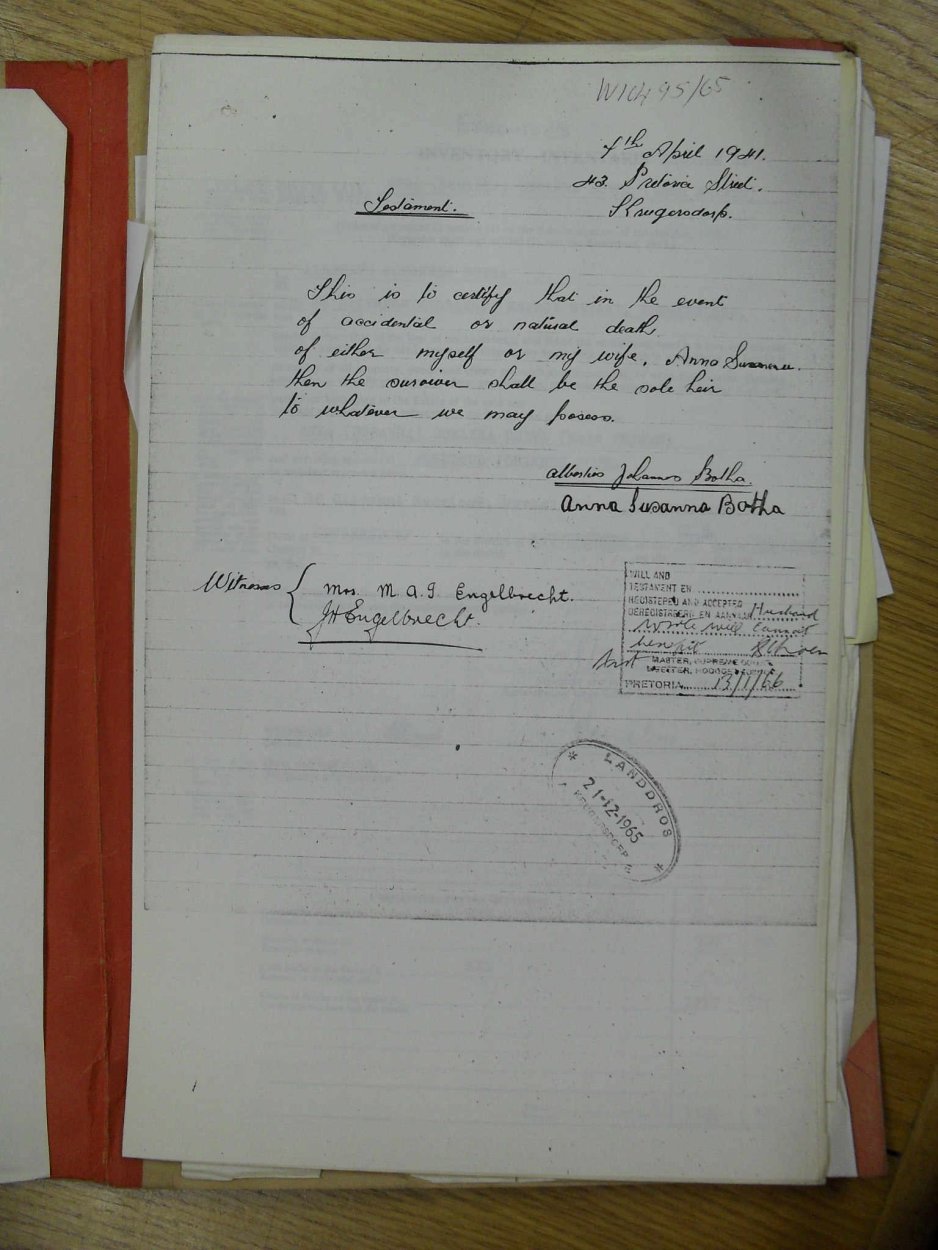 W10495/65
4th April 1941.
43. Pretoria Street.
Krugersdorp.
Testament.
This is to certify that in the event
of accidental or natural death
of either myself or my wife, Anna Susanna.
then the surviver shall be the sole heir
to whatever we may posess.
Albertus Johannes Botha.
Anna Susanna Botha
Witnesses { Mrs. M. A. J. Engelbrecht.
JH Engelbrecht.
WILL AND
TESTAMENT EN
REGISTERED AND ACCEPTED
GEREGISTREER EN AANVAAR Husband
wrote will cannot
benefit
MASTER, SUPREME COURT
MEESTER, HOOGGEREGSHOF
PRETORIA 13/1/66
* LANDDROS *
21-12-1965
KRUGERSDORP